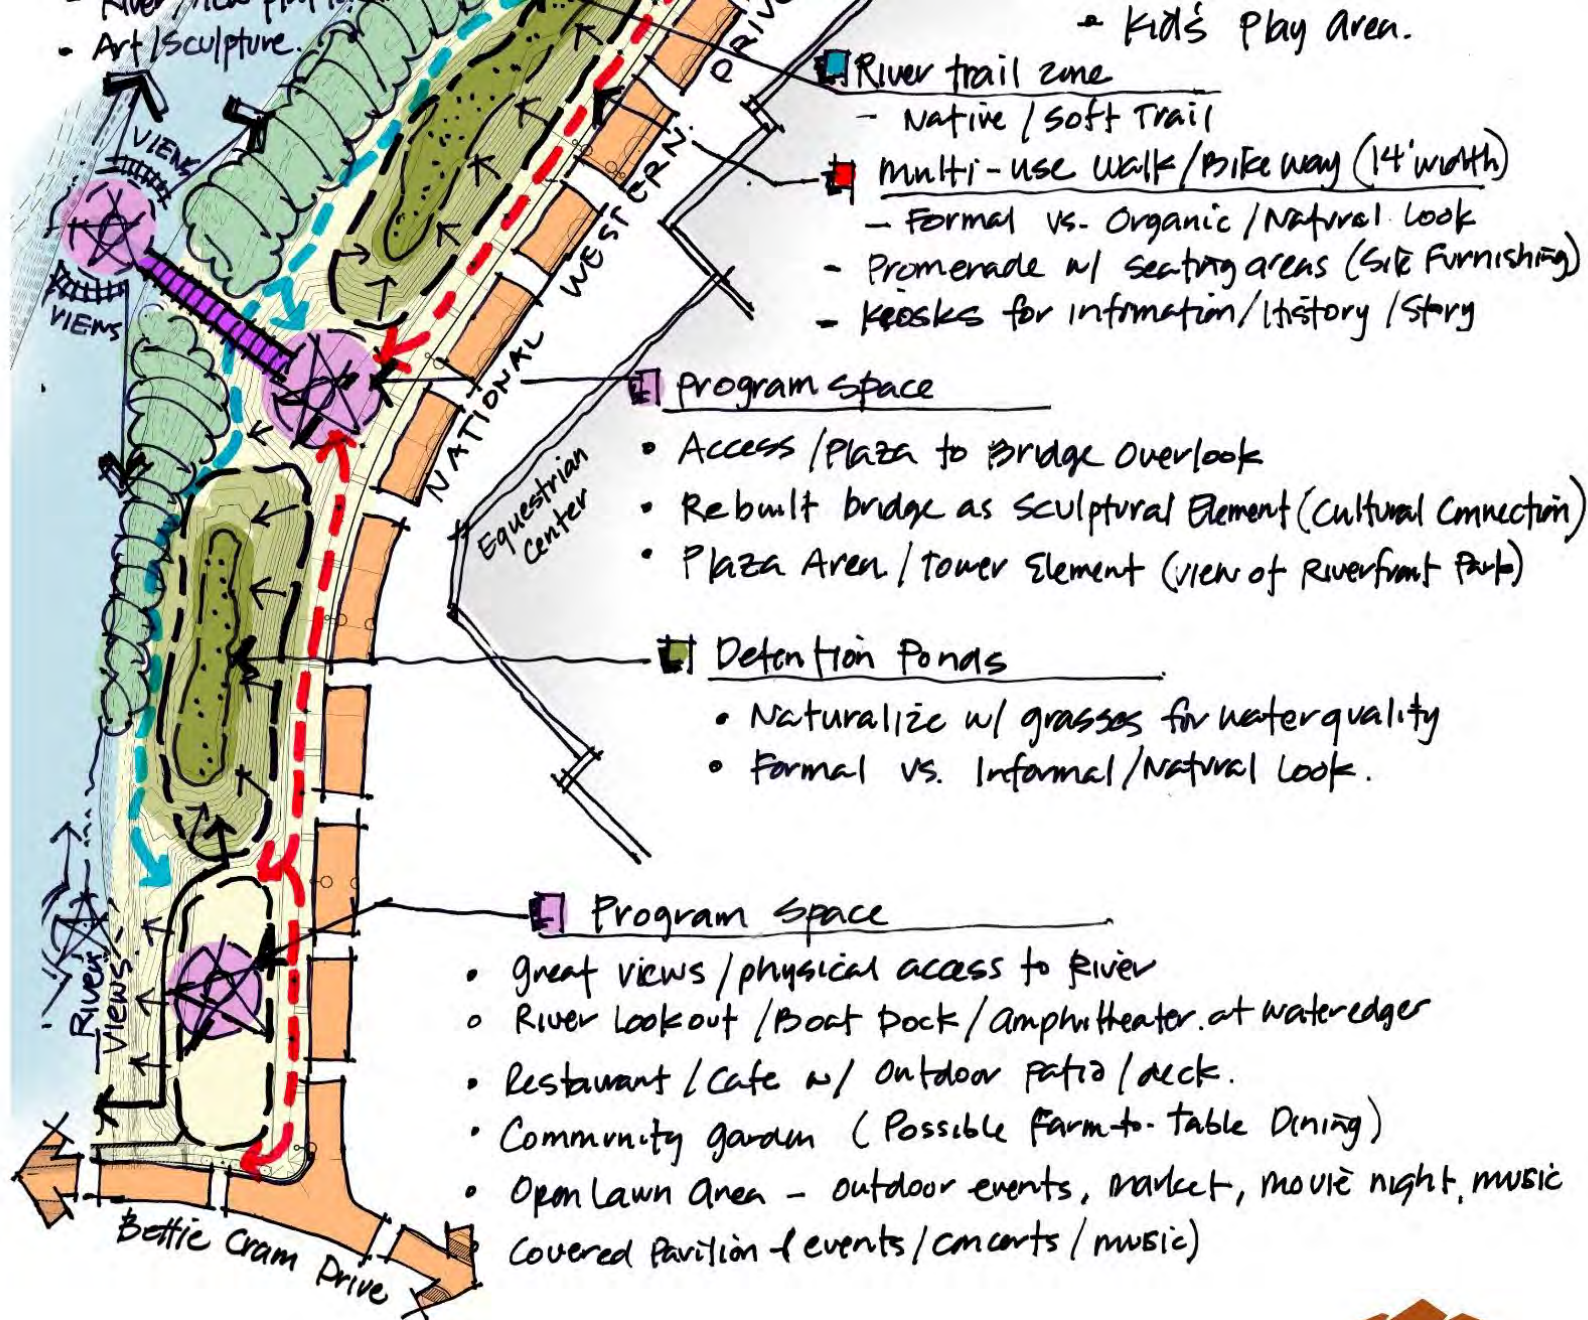 - River/
• Art/Sculpture.
VIEWS
VIEWS
- Kid's Play area.
River trail zone
- Native / Soft Trail
Multi-use Walk/Bikeway (14' width)
- Formal vs. Organic/Natural Look
- Promenade w/ seating areas (Site Furnishing)
- Kiosks for infrmation/History/Story
NATIONAL WESTERN DRIVE
Equestrian
Center
Program Space
• Access/Plaza to Bridge Overlook
• Rebuilt bridge as Sculptural Element (Cultural Connection)
• Plaza Area/Tower Element (view of Riverfront Park)
Detention Ponds
• Naturalize w/ grasses for water quality
• Formal vs. Informal/Natural Look.
River
Views
Program Space
• great views/physical access to River
• River Lookout/Boat Dock/Amphitheater.at wateredges
• Restaurant/Cafe w/ Outdoor Patio/deck.
• Community garden (Possible Farm-to-Table Dining)
• Open Lawn Area - outdoor events, market, movie night, music
Covered Pavilion (events/concerts/music)
Bettie Cram Drive